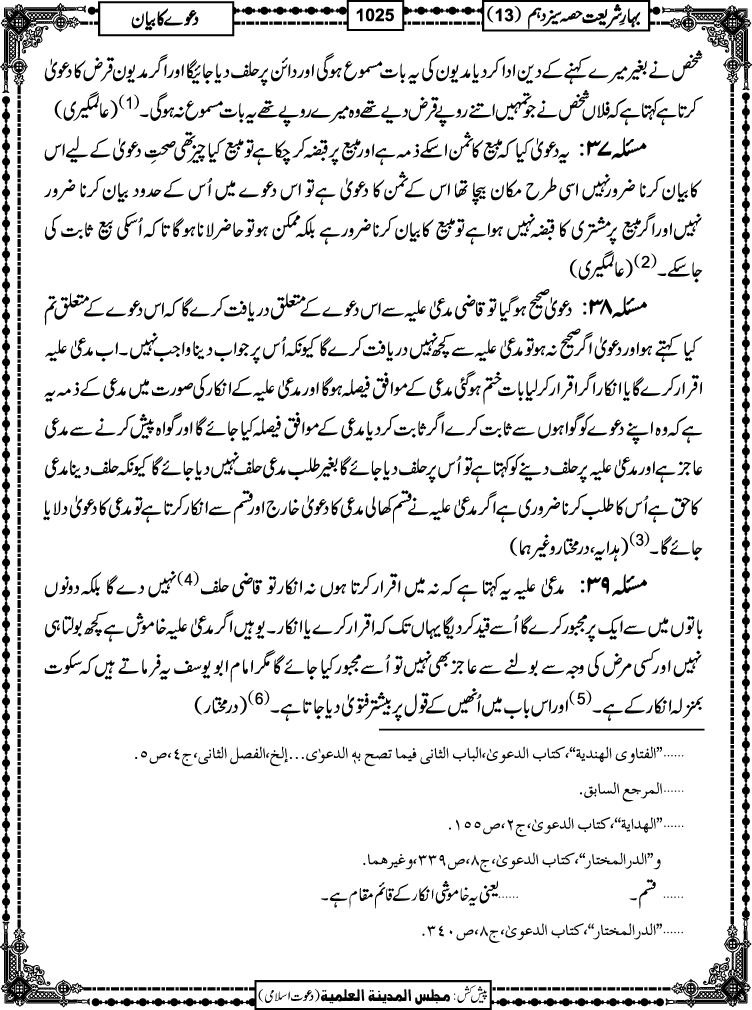 بہارِ شریعت حصہ سیزدہم (13)
1025
دعوے کا بیان
شخص نے بغیر میرے کہنے کے دین ادا کردیا مدیون کی یہ بات مسموع ہوگی اور دائن پر حلف دیا جائیگا اور اگر مدیون قرض کا دعویٰ
کرتا ہے کہتا ہے کہ فلاں شخص نے جو تمہیں اتنے روپے قرض دیے تھے وہ میرے روپے تھے یہ بات مسموع نہ ہوگی۔(1) (عالمگیری)
مسئلہ ۳۷: یہ دعویٰ کیا کہ مبیع کا ثمن اسکے ذمہ ہے اور مبیع پر قبضہ کر چکا ہے تو مبیع کیا چیز تھی صحتِ دعویٰ کے لیے اس
کا بیان کرنا ضرور نہیں اسی طرح مکان بیچا تھا اس کے ثمن کا دعویٰ ہے تو اس دعوے میں اُس کے حدود بیان کرنا ضرور
نہیں اور اگر مبیع پر مشتری کا قبضہ نہیں ہوا ہے تو مبیع کا بیان کرنا ضرور ہے بلکہ ممکن ہو تو حاضر لانا ہوگا تا کہ اُسکی بیع ثابت کی
جاسکے۔(2) (عالمگیری)
مسئلہ ۳۸: دعویٰ صحیح ہوگیا تو قاضی مدعیٰ علیہ سے اس دعوے کے متعلق دریافت کرے گا کہ اس دعوے کے متعلق تم
کیا کہتے ہو اور دعویٰ اگر صحیح نہ ہو تو مدعیٰ علیہ سے کچھ نہیں دریافت کرے گا کیونکہ اُس پر جواب دینا واجب نہیں۔ اب مدعیٰ علیہ
اقرار کرے گا یا انکار اگر اقرار کرلیا بات ختم ہوگئی مدعی کے موافق فیصلہ ہوگا اور مدعیٰ علیہ کے انکار کی صورت میں مدعی کے ذمہ یہ
ہے کہ وہ اپنے دعوے کو گواہوں سے ثابت کرے اگر ثابت کردیا مدعی کے موافق فیصلہ کیا جائے گا اور گواہ پیش کرنے سے مدعی
عاجز ہے اور مدعیٰ علیہ پر حلف دینے کو کہتا ہے تو اُس پر حلف دیا جائے گا بغیر طلب مدعی حلف نہیں دیا جائے گا کیونکہ حلف دینا مدعی
کا حق ہے اُس کا طلب کرنا ضروری ہے اگر مدعیٰ علیہ نے قسم کھالی مدعی کا دعویٰ خارج اور قسم سے انکار کرتا ہے تو مدعی کا دعویٰ دلا یا
جائے گا۔(3) (ہدایہ، درمختار وغیرہما)
مسئلہ ۳۹: مدعیٰ علیہ یہ کہتا ہے کہ نہ میں اقرار کرتا ہوں نہ انکار تو قاضی حلف(4) نہیں دے گا بلکہ دونوں
باتوں میں سے ایک پر مجبور کرے گا اُسے قید کر دیگا یہاں تک کہ اقرار کرے یا انکار۔ یوہیں اگر مدعیٰ علیہ خاموش ہے کچھ بولتا ہی
نہیں اور کسی مرض کی وجہ سے بولنے سے عاجز بھی نہیں تو اُسے مجبور کیا جائے گا مگر امام ابو یوسف یہ فرماتے ہیں کہ سکوت
بمنزلہ انکار کے ہے۔(5) اور اس باب میں اُنھیں کے قول پر بیشتر فتویٰ دیا جاتا ہے۔(6) (درمختار)
......”الفتاوی الهندیة“،کتاب الدعویٰ،الباب الثانی فیما تصح بہ الدعوٰی...إلخ،الفصل الثانی،ج٤،ص٥.
......المرجع السابق.
......”الهدایة“،کتاب الدعویٰ،ج٢،ص١٥٥.
و”الدرالمختار“،کتاب الدعویٰ،ج٨،ص٣٣٩،وغیرهما.
......قسم۔ ......یعنی یہ خاموشی انکار کے قائم مقام ہے۔
......”الدرالمختار“،کتاب الدعویٰ،ج٨،ص٣٤٠.
پیش کش: مجلس المدینة العلمیة (دعوت اسلامی)